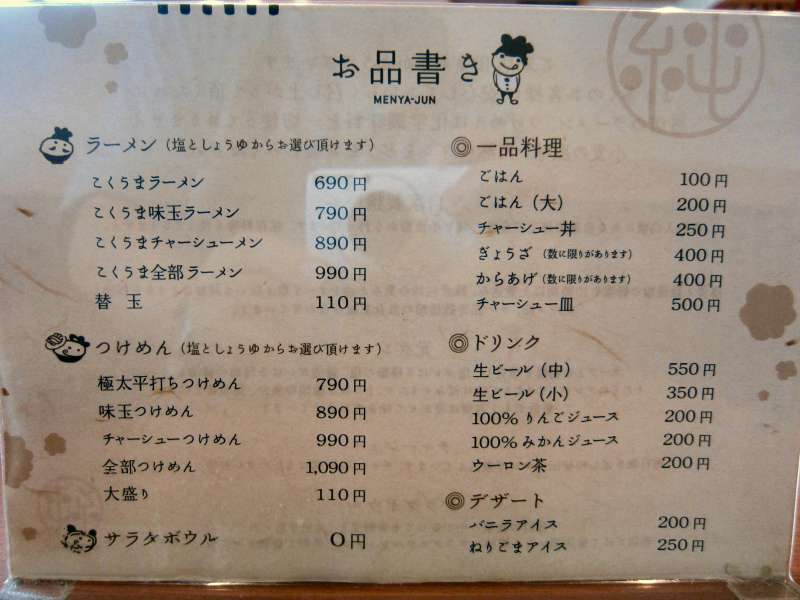 お品書き
MENYA-JUN
ラーメン（塩としょうゆからお選び頂けます）
こくうまラーメン 690円
こくうま味玉ラーメン 790円
こくうまチャーシューメン 890円
こくうま全部ラーメン 990円
替 玉 110円
つけめん（塩としょうゆからお選び頂けます）
極太平打ちつけめん 790円
味玉つけめん 890円
チャーシューつけめん 990円
全部つけめん 1,090円
大盛り 110円
サラダボウル 0円
一品料理
ごはん 100円
ごはん（大） 200円
チャーシュー丼 250円
ぎょうざ（数に限りがあります） 400円
からあげ（数に限りがあります） 400円
チャーシュー皿 500円
ドリンク
生ビール（中） 550円
生ビール（小） 350円
100% りんごジュース 200円
100% みかんジュース 200円
ウーロン茶 200円
デザート
バニラアイス 200円
ねりごまアイス 250円